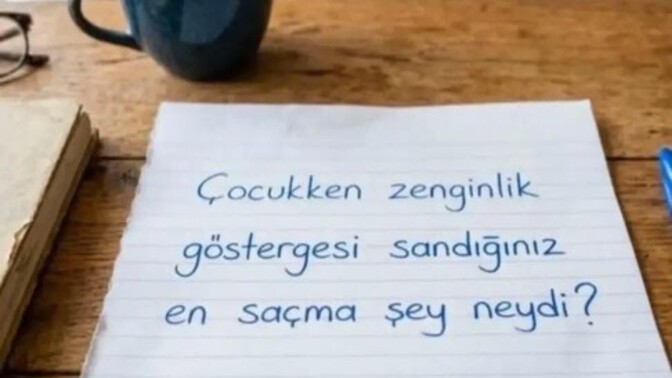 Çocukken zenginlik
göstergesi sandığınız
en saçma şey neydi?